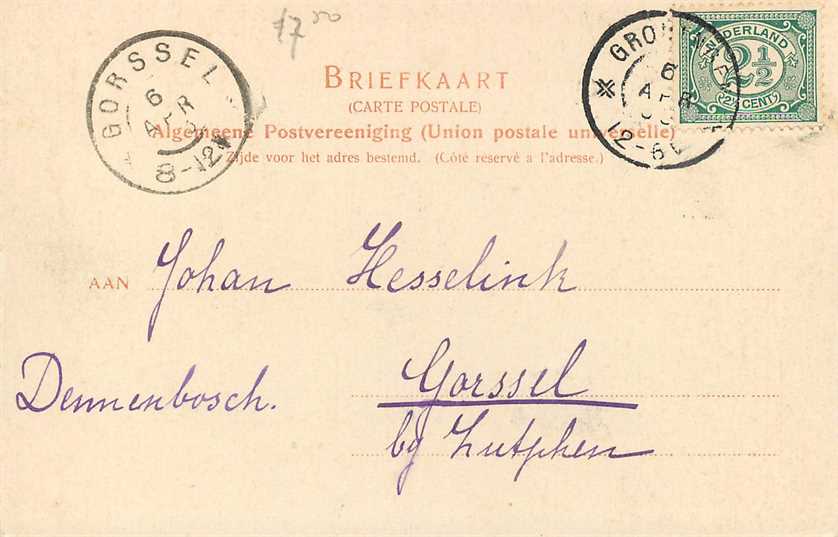 f 7 50
GORSSEL
6
APR
8-12V
GRONINGEN
6
APR
12-6
NEDERLAND
2½
2½ CENT
BRIEFKAART
(CARTE POSTALE)
Algemeene Postvereeniging (Union postale universelle)
Zijde voor het adres bestemd. (Côté reservé a l'adresse.)
AAN Johan Hesselink
Gorssel
Dennenbosch.
by Zutphen